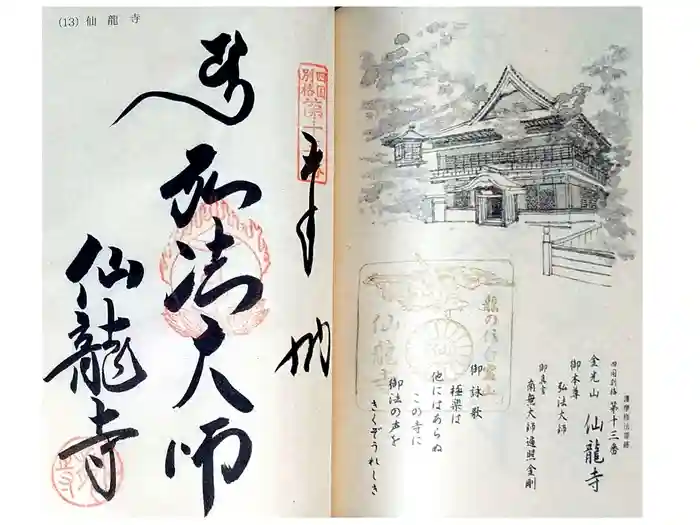 (13) 仙龍寺
四国
別格
第十三番
奉納
弘法大師
仙龍寺
四国別格 第十三番
金光山 仙龍寺
御本尊
弘法大師
御真言
南無大師遍照金剛
御詠歌
極楽は
他にはあらぬ
この寺に
御法の声を
きくぞうれしき
仙龍寺